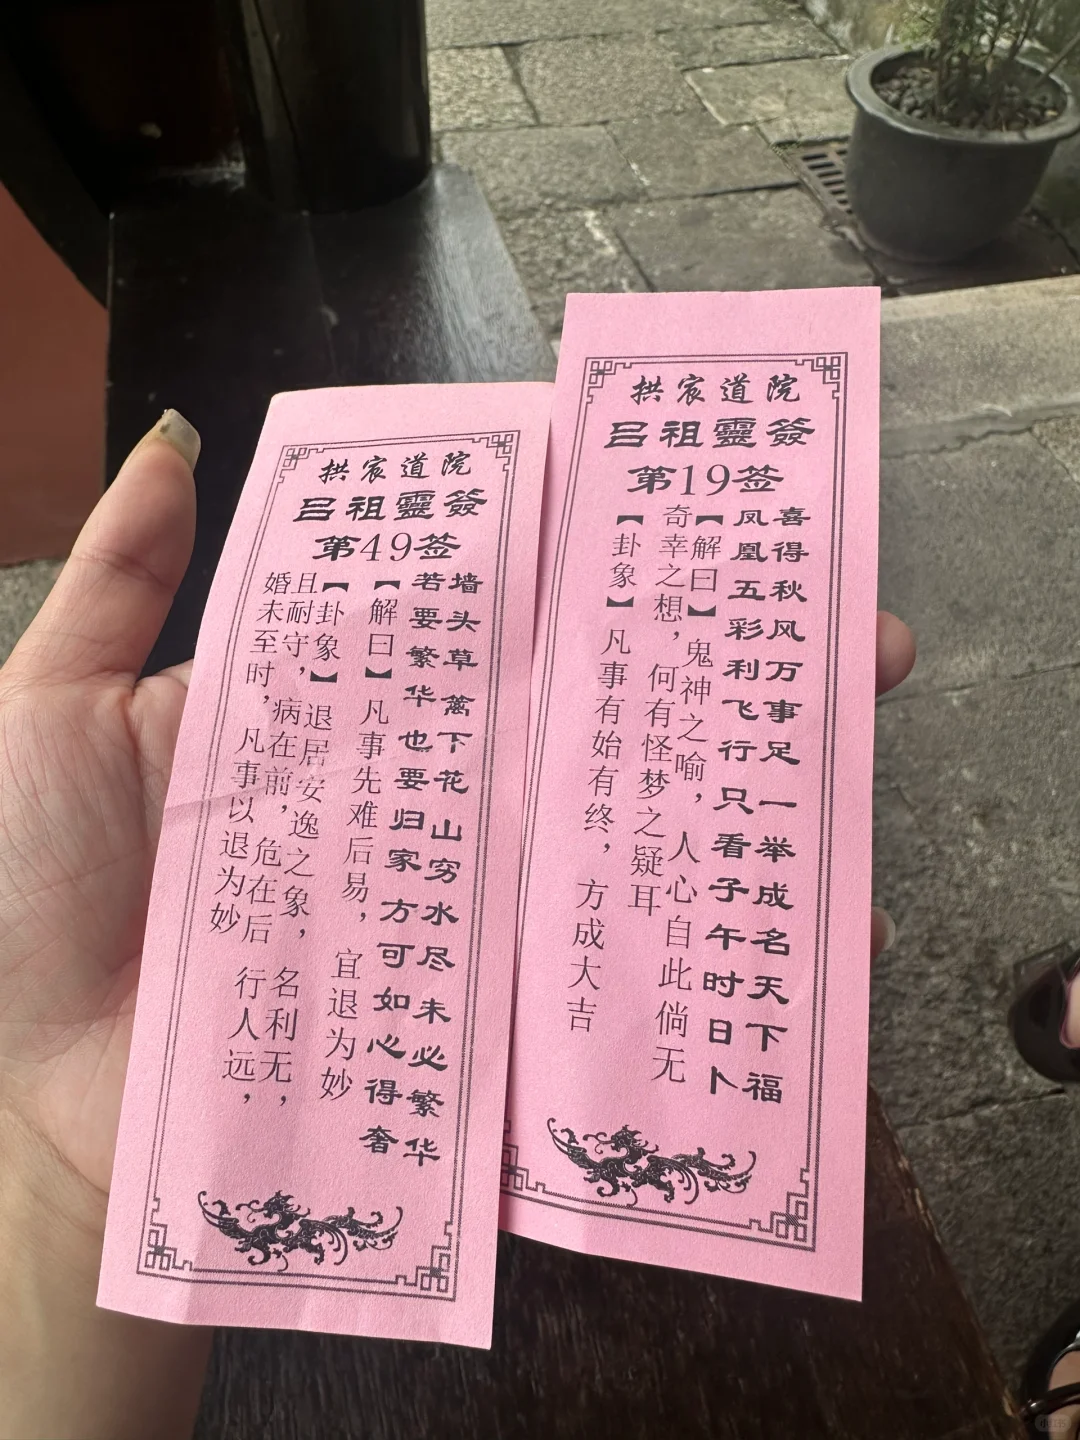 拱宸道院
吕祖靈簽
第49签
墙头草篱下花山穷水尽未必繁华
若要繁华也要归家方可如心得奢
【解曰】凡事先难后易，宜退为妙
【卦象】退居安逸之象，名利无，
且耐守，病在前，危在后 行人远，
婚未至时，凡事以退为妙
拱宸道院
吕祖靈簽
第19签
喜得秋风万事足一举成名天下福
凤凰五彩利飞行只看子午时日卜
【解曰】鬼神之喻，人心自此倘无
奇幸之想，何有怪梦之疑耳
【卦象】凡事有始有终，方成大吉